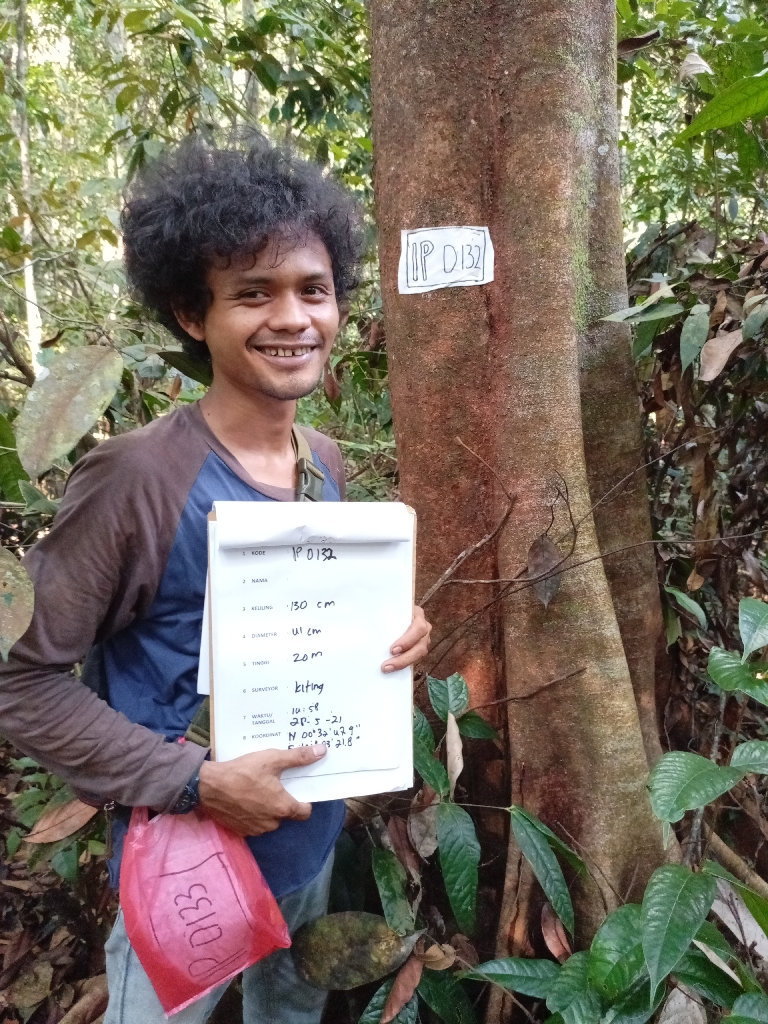 IP 0132
1 KODE IP 0132
2 NAMA
3 KELILING 130 cm
4 DIAMETER 41 cm
5 TINGGI 20 m
6 SURVEYOR kiting
7 WAKTU/ 10:58
TANGGAL 28-5-21
8 KOORDINAT N 00°32'
21.8"
IP 0133